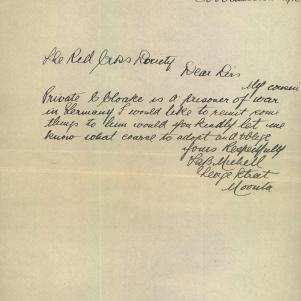 The Red Cross Society
Dear Sirs
My cousin
Private C Cloake is a prisoner of war
in Germany I would like to remit some
things to him would you kindly let me
know what coarse to adopt and oblige
yours Respectfully
Mitchell
George Street
Moonta